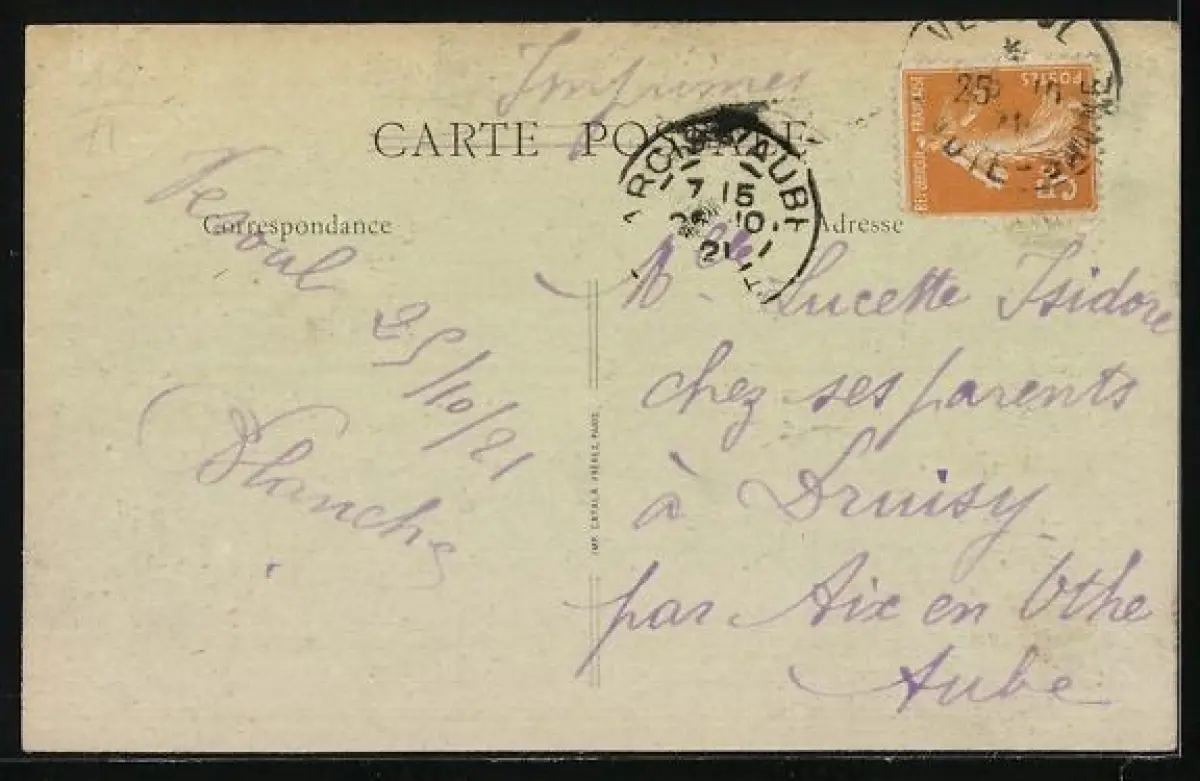 Imprimés
CARTE POSTALE
Correspondance
Adresse
Vesoul
25/10/21
Blanche
Mlle Lucette Isidore
chez ses parents
à Druisy
par Aix en Othe
Aube
IMP. CATALA FRÈRES, PARIS
POSTES
FRANÇAISE
VESOUL
25
HTE-SAONE
7 15
10
21